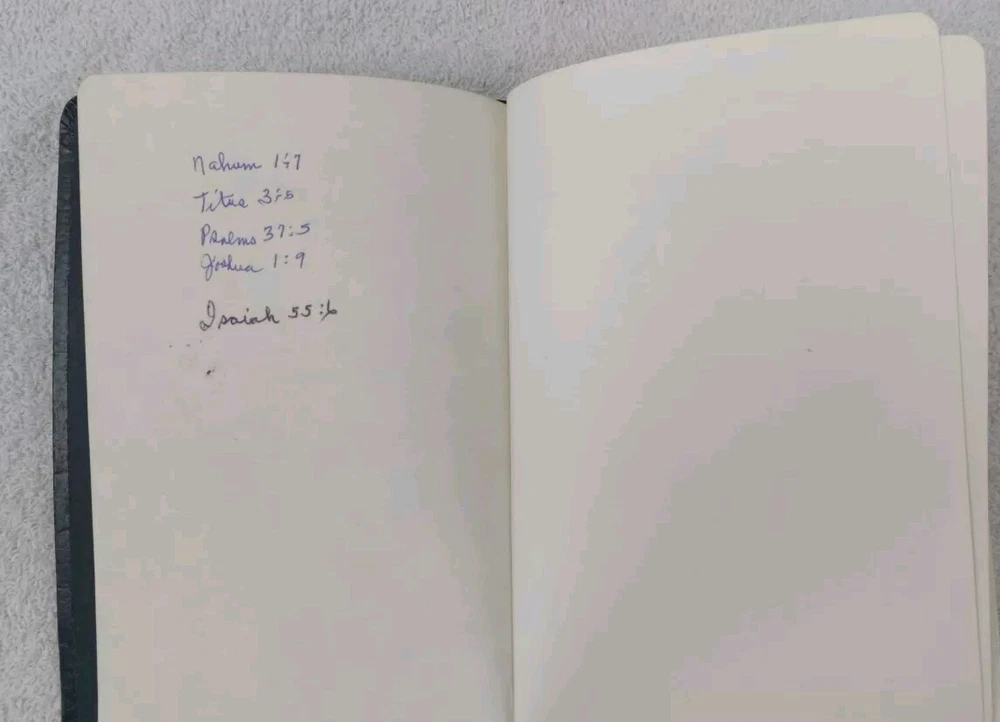 Nahum 1:7
Titus 3:5
Psalms 37:5
Joshua 1:9
Isaiah 55:6